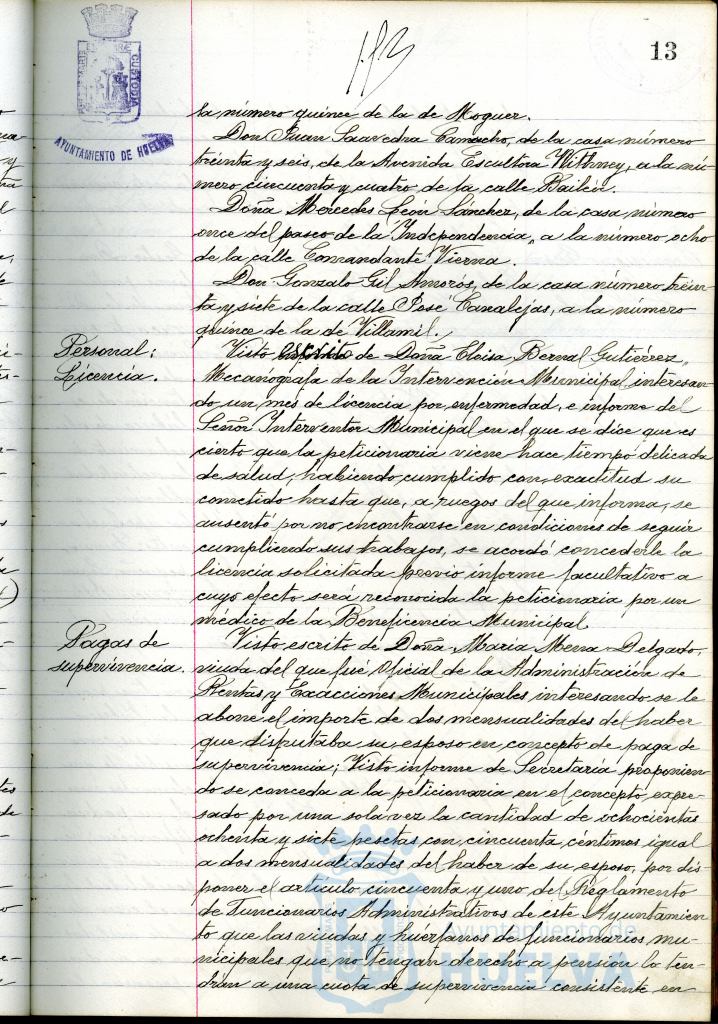 113
13
AYUNTAMIENTO DE HUELVA
CUSTODIA
la número quince de la de Moguer.
Don Juan Saavedra Camacho, de la casa número
treinta y seis, de la Avenida Escultora Withney, a la nú-
mero cincuenta y cuatro, de la calle Bailén.
Doña Mercedes León Sánchez, de la casa número
once del paseo de la Independencia, a la número ocho
de la calle Comandante Vierna.
Don Gonzalo Gil Amorós, de la casa número trein-
ta y siete de la calle José Canalejas, a la número
quince de la de Villamil.
Personal:
Licencia.
Visto escrito de Doña Eloisa Bernal Gutiérrez,
Mecanógrafa de la Intervención Municipal interesan-
do un mes de licencia por enfermedad, e informe del
Señor Interventor Municipal en el que se dice que es
cierto que la peticionaria viene hace tiempo delicada
de salud, habiendo cumplido con exactitud su
cometido hasta que, a ruegos del que informa, se
ausentó por no encontrarse en condiciones de seguir
cumpliendo sus trabajos, se acordó concederle la
licencia solicitada previo informe facultativo a
cuyo efecto será reconocida la peticionaria por un
médico de la Beneficencia Municipal
Pagas de
supervivencia.
Visto escrito de Doña María Mena Delgado,
viuda del que fué Oficial de la Administración de
Rentas y Exacciones Municipales interesando se le
abone el importe de dos mensualidades del haber
que disfrutaba su esposo en concepto de paga de
supervivencia; Visto informe de Secretaría proponien-
do se conceda a la peticionaria en el concepto expre-
sado por una sola vez la cantidad de ochocientas
ochenta y siete pesetas con cincuenta céntimos igual
a dos mensualidades del haber de su esposo, por dis-
poner el artículo cincuenta y uno del Reglamento
de Funcionarios Administrativos de este Ayuntamien-
to que las viudas y huérfanos de funcionarios mu-
nicipales que no tengan derecho a pensión lo ten-
drán a una cuota de supervivencia consistente en
Ayuntamiento de
HUELVA